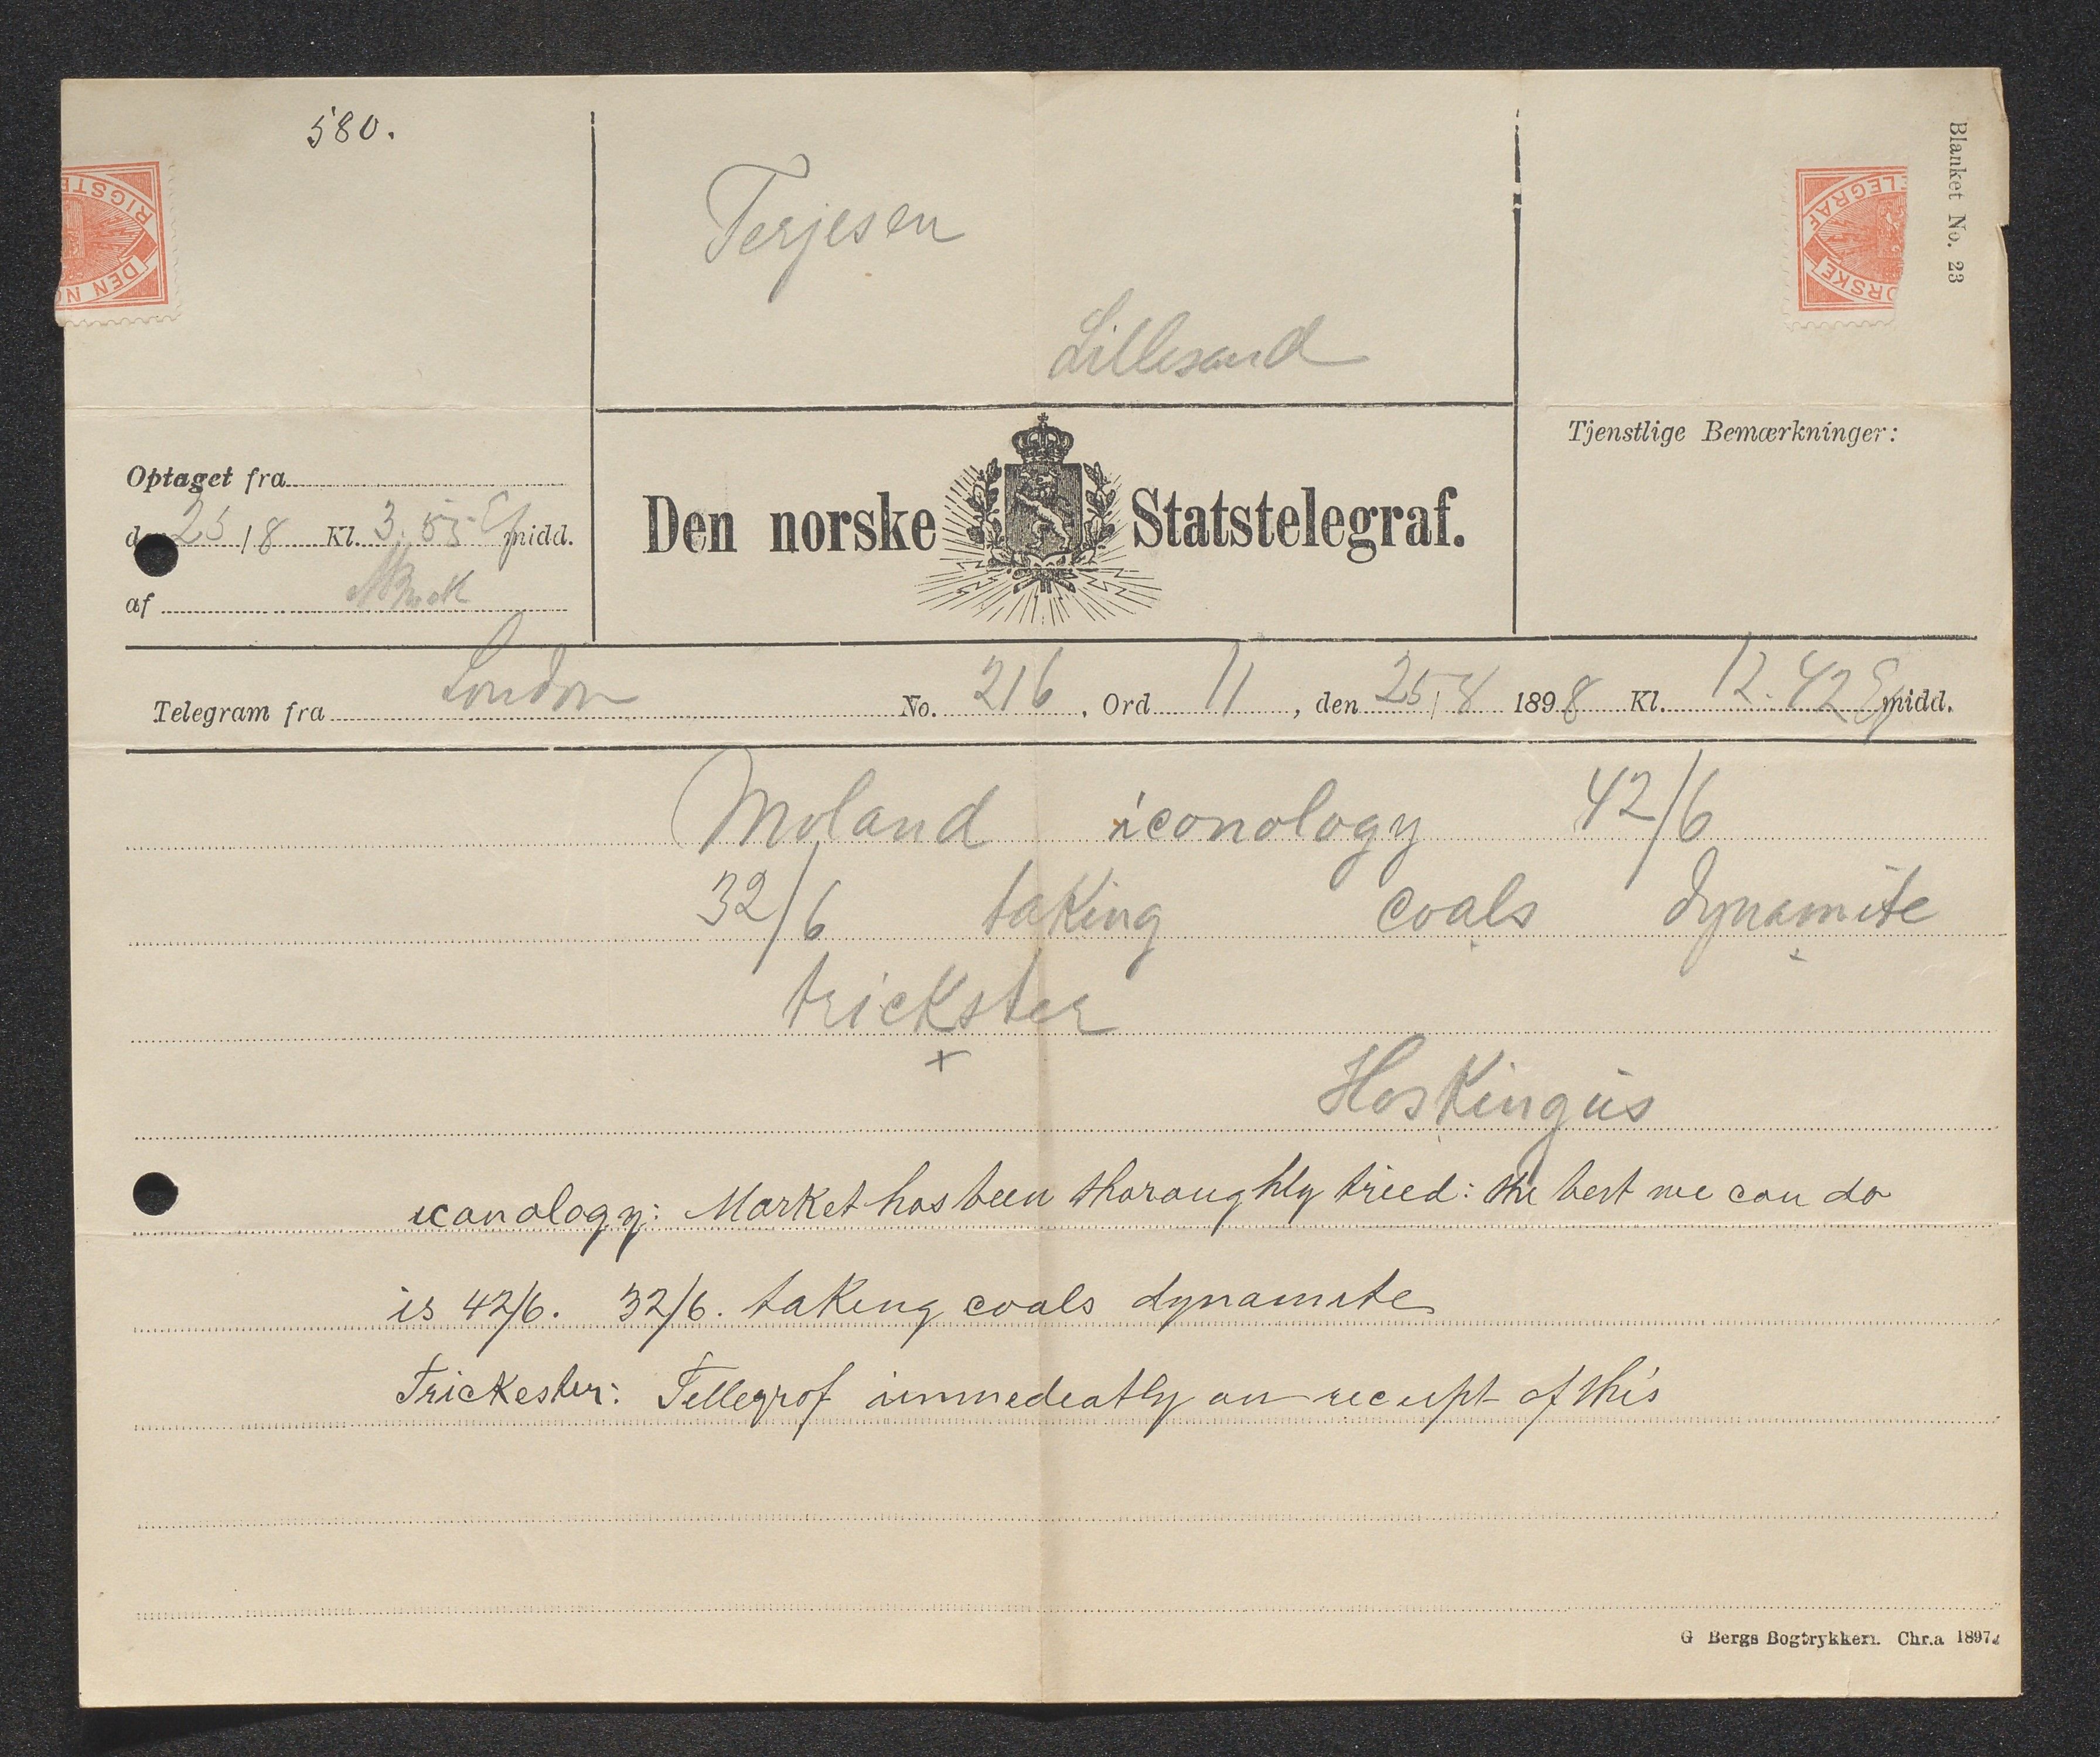 580.
Blanket No. 23
RIGSTE
DEN NO
ELEGRAF
ORSKE
Terjesen
Lillesand
Tjenstlige Bemærkninger:
Optaget fra
den 25/8 Kl. 3.55 Ef midd.
af
Den norske Statstelegraf.
Telegram fra London No. 216, Ord 11, den 25/8 1898 Kl. 12.42 Ef midd.
Moland iconology 42/6
32/6 taking coals dynamite
trickster
x
Hoskingus
iconology: Market has been thoroughly tried: the best we can do
is 42/6. 32/6. taking coals dynamite
Trickester: Tellegrof immedeatly on receipt of this
G Bergs Bogtrykkeri. Chr.a 1897.